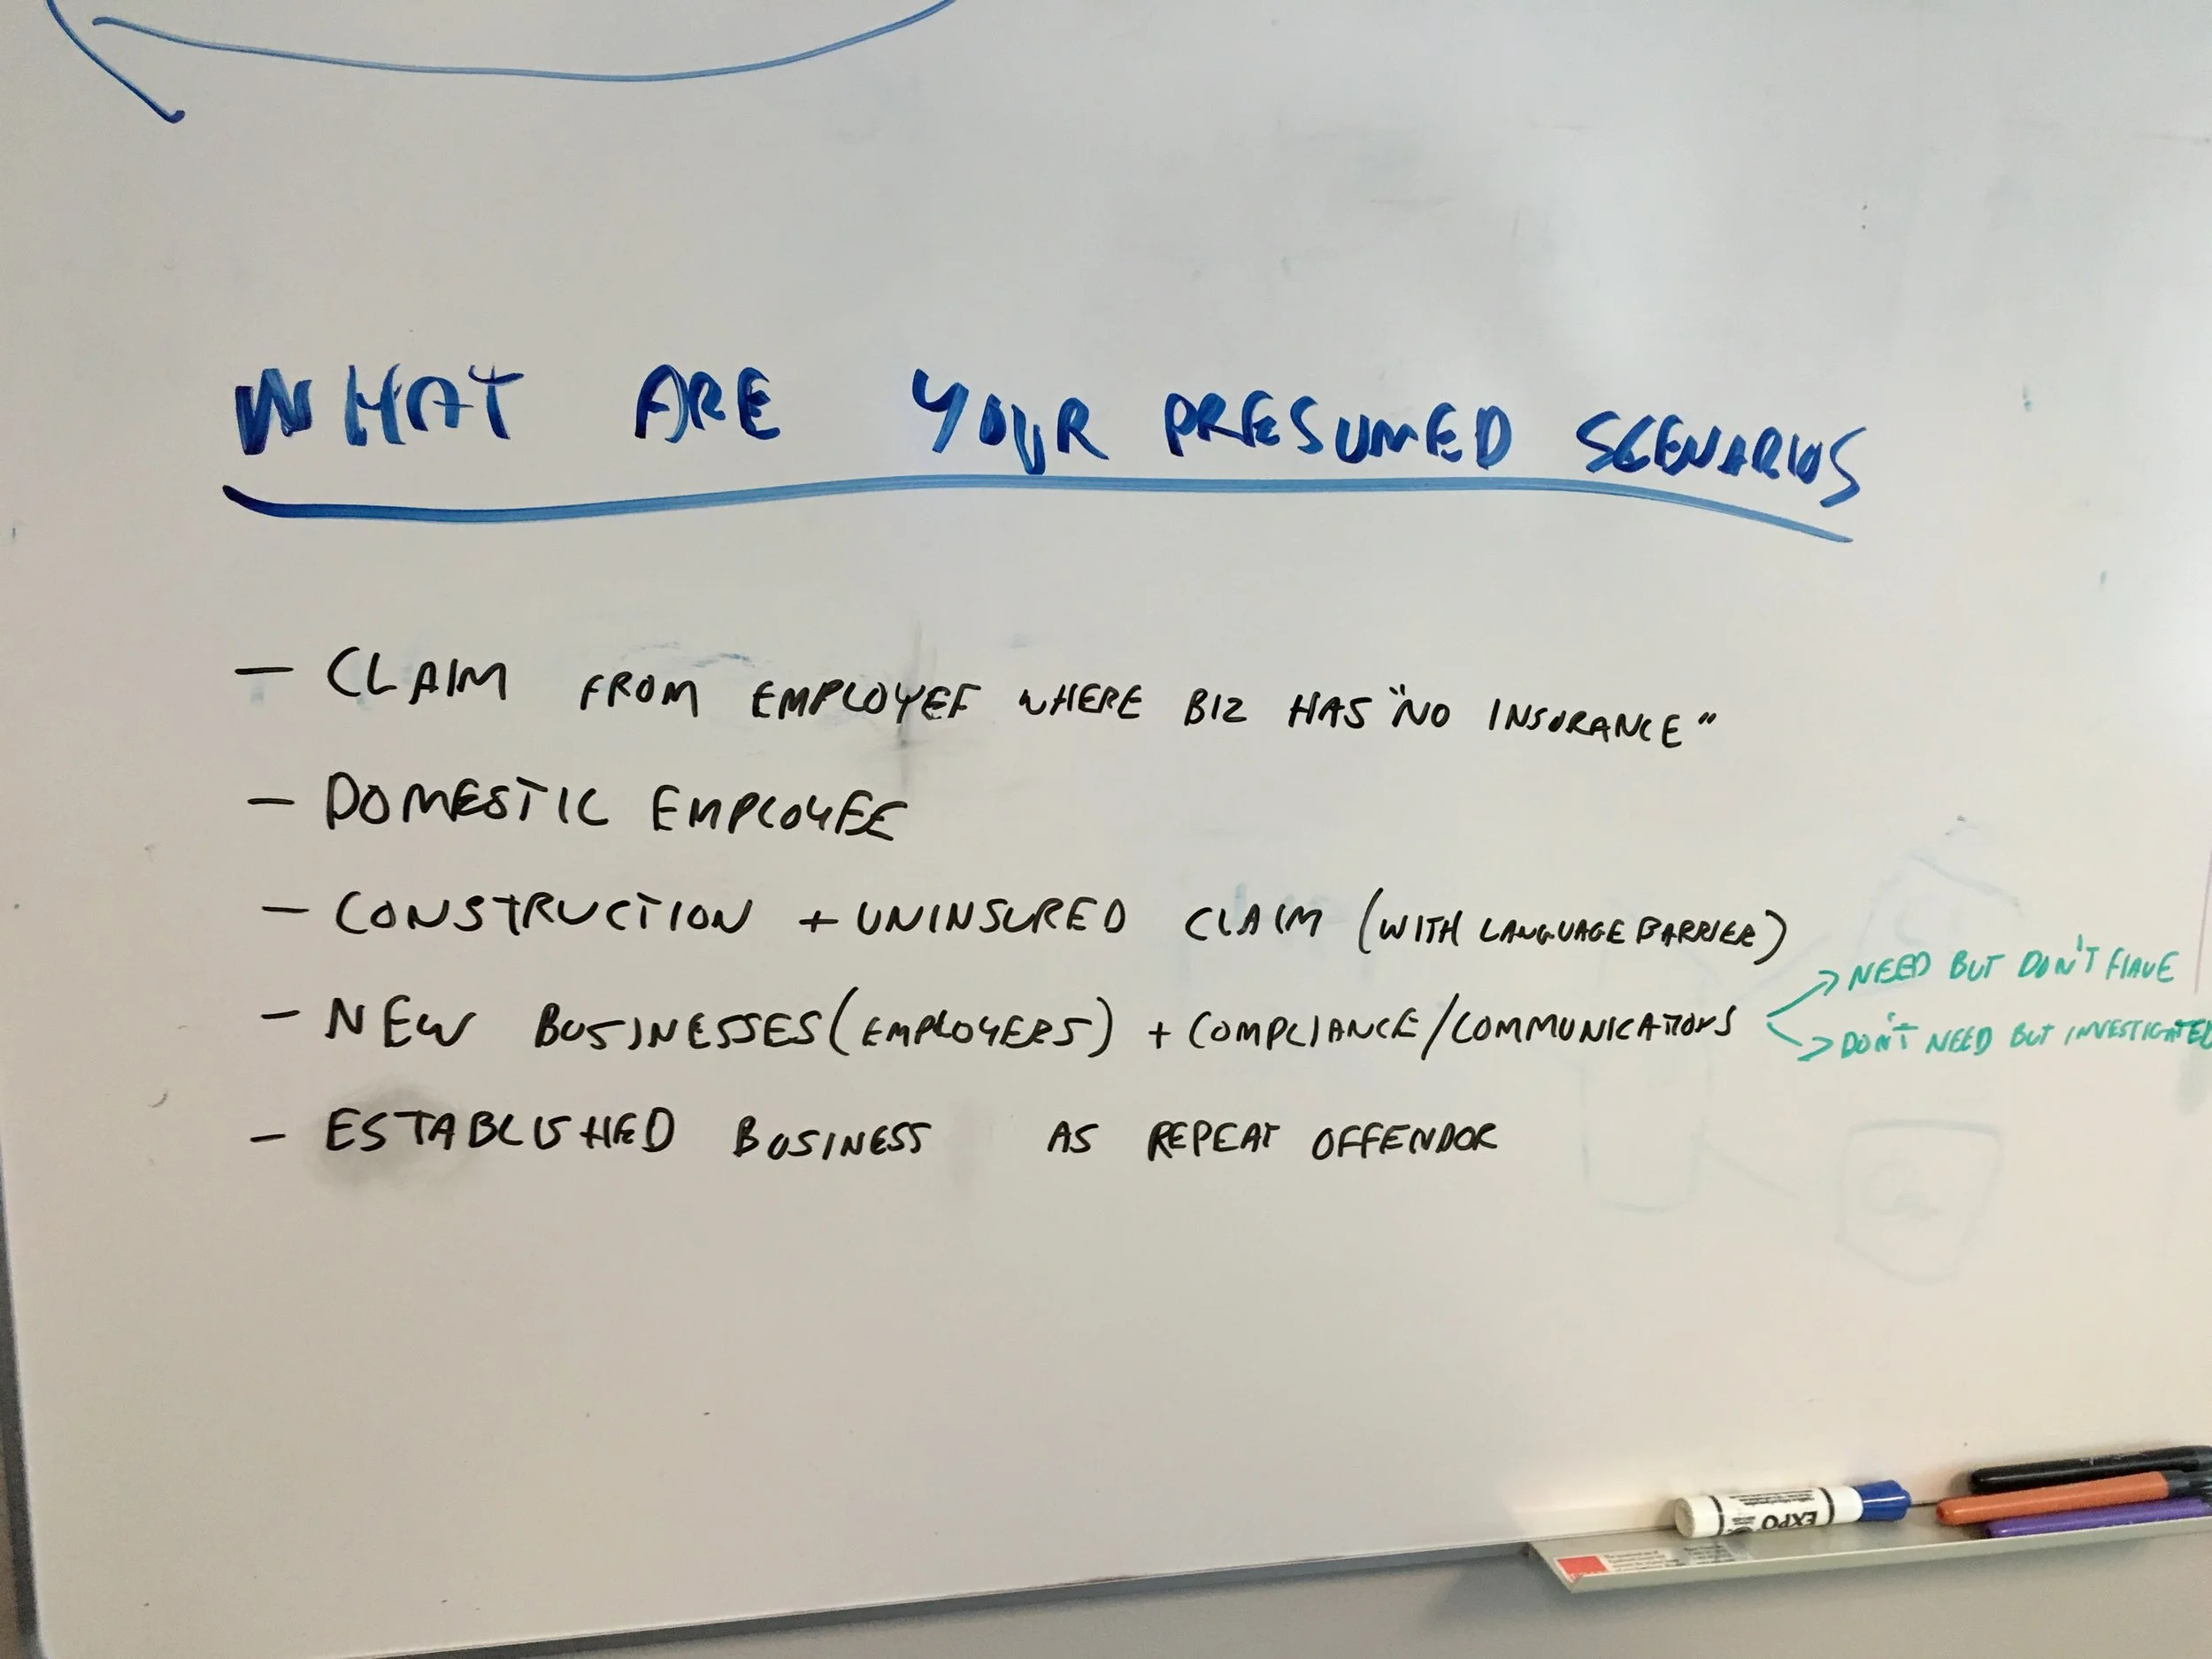 WHAT ARE YOUR PRESUMED SCENARIOS
— CLAIM FROM EMPLOYEE WHERE BIZ HAS "NO INSURANCE"
— DOMESTIC EMPLOYEE
— CONSTRUCTION + UNINSURED CLAIM (WITH LANGUAGE BARRIER)
— NEW BUSINESSES (EMPLOYERS) + COMPLIANCE/COMMUNICATIONS
→ NEED BUT DON'T HAVE
→ DON'T NEED BUT INVESTIGATED
— ESTABLISHED BUSINESS AS REPEAT OFFENDOR
EXPO